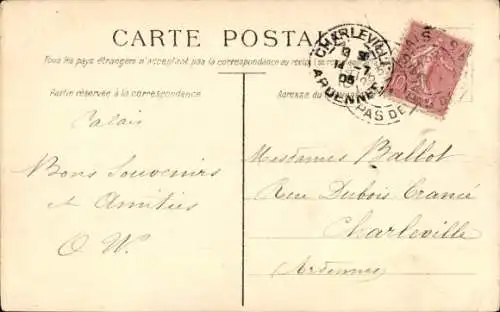 CARTE POSTALE
Tous les pays étrangers n'acceptent pas la correspondance au recto
Partie réservée à la correspondance
Adresse du
CHARLEVILLE
14-7
05
ARDENNES
PAS DE
Calais
Bons Souvenirs
et Amitiés
O. W.
Mesdames Ballot
Rue Dubois Crancé
Charleville
(Ardennes)